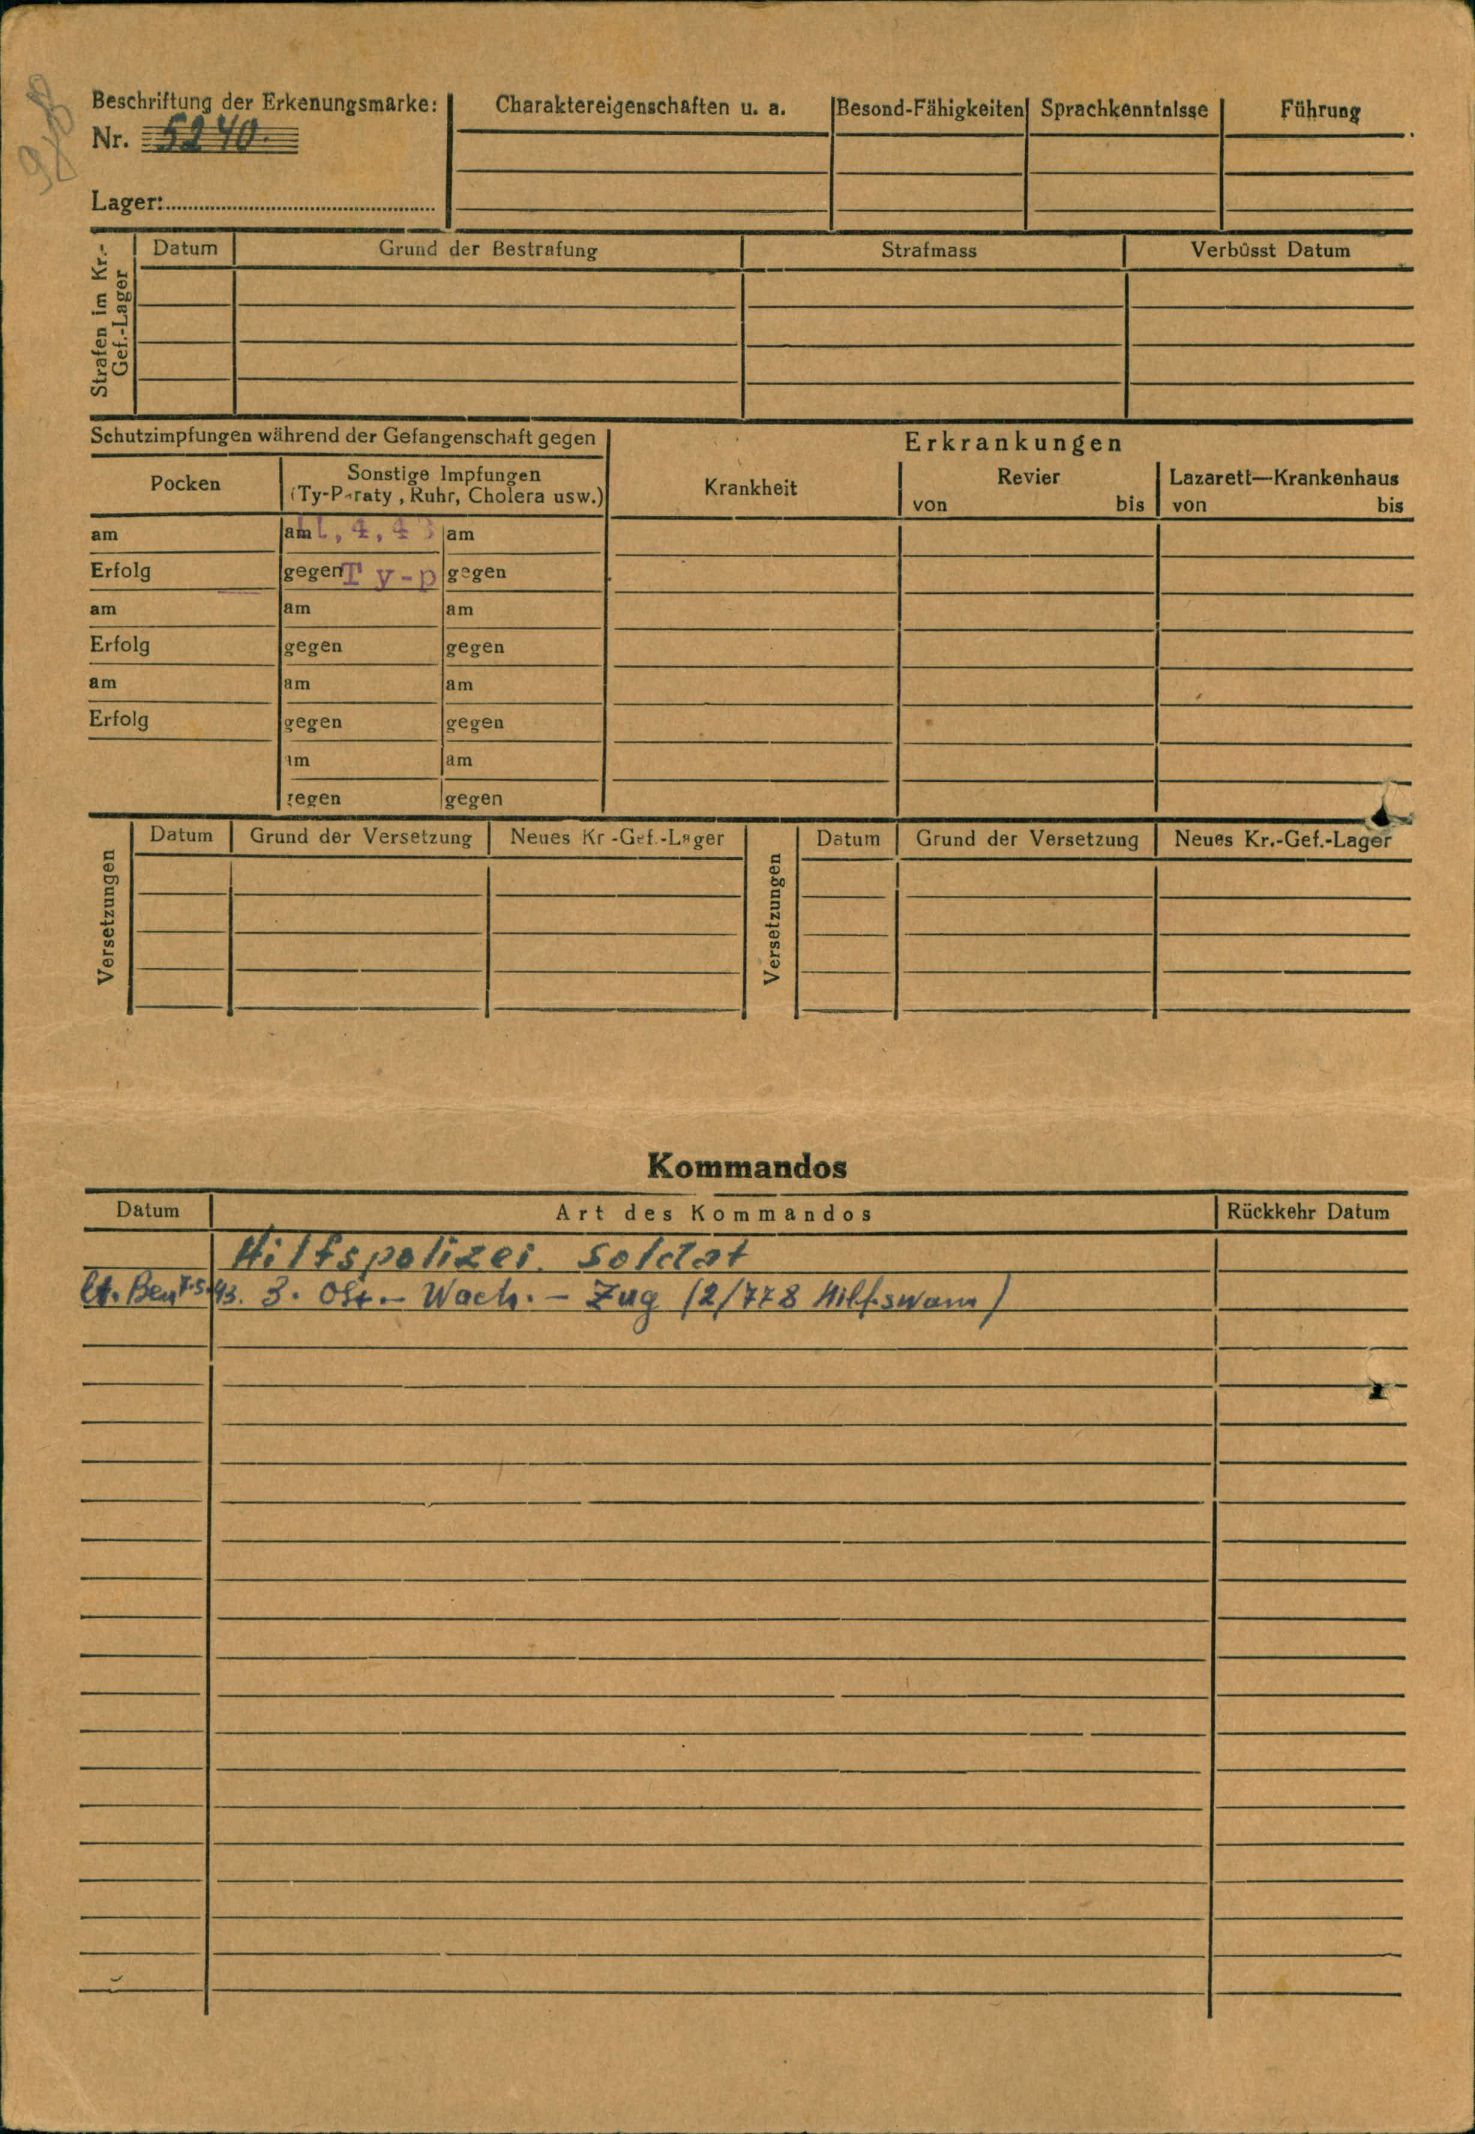 Beschriftung der Erkenungsmarke:
Nr. 5240.
Lager:
Charaktereigenschaften u. a.
Besond-Fähigkeiten
Sprachkenntnisse
Führung
Strafen im Kr.-
Gef.-Lager
Datum
Grund der Bestrafung
Strafmass
Verbüsst Datum
Schutzimpfungen während der Gefangenschaft gegen
Pocken
Sonstige Impfungen
(Ty-Paraty, Ruhr, Cholera usw.)
Erkrankungen
Krankheit
Revier
von bis
Lazarett—Krankenhaus
von bis
am am 11,4,43 am
Erfolg gegen Ty-p gegen
am am am
Erfolg gegen gegen
am am am
Erfolg gegen gegen
am am
gegen gegen
Versetzungen
Datum
Grund der Versetzung
Neues Kr-Gef.-Lager
Versetzungen
Datum
Grund der Versetzung
Neues Kr.-Gef.-Lager
Kommandos
Datum
Art des Kommandos
Rückkehr Datum
Hilfspolizei. Soldat
7.5.43. 3. Ost.- Wach. - Zug (2/778